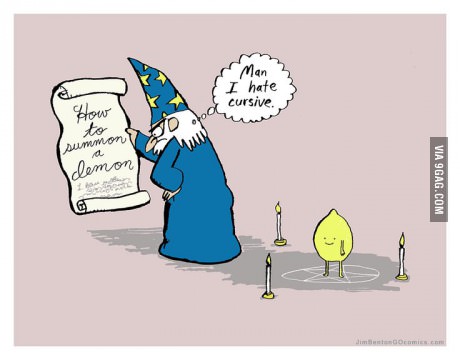 How
to
summon
a
demon
Man
I hate
cursive.
VIA 9GAG.COM
JimBentonGOcomics.com